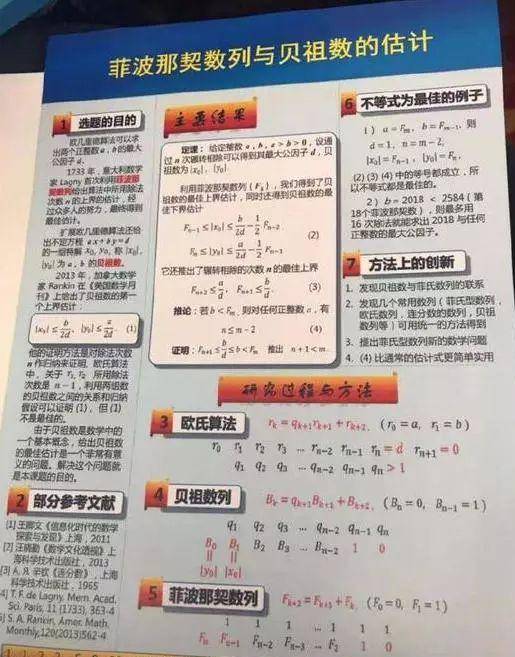 菲波那契数列与贝祖数的估计
1 选题的目的
欧几里德算法可以求
出两个正整数a,b的最大
公因子d.
1733 年,意大利数学
家 Lagny 首次利用菲波那
契数列给出算法中所用除法
次数 n 的上界的估计,经
过众多人的努力,最终得到
最佳估计。
扩展欧几里德算法还给
出不定方程 ax+by=d
的一组特解 x₀, y₀, 称 |x₀|,
|y₀| 为 a, b 的贝祖数。
2013 年,加拿大数学
家 Rankin 在《美国数学月
刊》上给出了贝祖数的第一
个上界估计:
|x₀| ≤ b/2d, |y₀| ≤ a/2d. (1)
他的证明方法是对除法次数
n 作归纳来证明. 欧几里德算法
中,关于 r₁, r₂ 所用除法
次数是 n − 1,利用两组数
的贝祖数之间的关系和归纳
假设可以证明 (1),但 (1)
不是最佳的。
由于贝祖数是数学中的
一个基本概念,给出贝祖数
的最佳估计是一个非常有意
义的问题。解决这个问题就
是本课题的目的。
2 部分参考文献
[1] 王卿文《信息化时代的数学
探索与发现》上海,2011
[2] 汪晓勤《数学文化透视》上
海科学技术出版社,2013
[3] A. Я. 辛钦《连分数》,上海
科学技术出版社,1965
4] T. F. de Lagny. Mem. Acad.
Sci. Paris, 11 (1733), 363-4
5] S. A. Rankin, Amer. Math.
Monthly,120(2013)562-4
主要结果
定理:给定整数 a, b, a > b > 0,设通
过 n 次辗转相除可以得到其最大公因子 d,贝
祖数为 |x₀|, |y₀|.
利用菲波那契数列 {Fₖ},我们得到了贝
祖数的最佳上界估计,同时还得到贝祖数的最
佳下界估计
Fₙ₋₁ ≤ |x₀| ≤ b/2d − 1/2 Fₙ₋₂
(2)
Fₙ ≤ |y₀| ≤ a/2d − 1/2 Fₙ₋₁
它还推出了辗转相除的次数 n 的最佳上界
Fₙ₊₂ ≤ a/d, Fₙ₊₁ ≤ b/d. (3)
推论:若 b < Fₘ,则对任何正整数 a,有
n ≤ m − 2 (4)
证明:Fₙ₊₁ ≤ b/d ≤ b < Fₘ 推出 n + 1 < m.
6 不等式为最佳的例子
1) a = Fₘ, b = Fₘ₋₁, 则
d = 1, n = m − 2,
|x₀| = Fₙ₋₁, |y₀| = Fₙ,
(2) (3) (4) 中的等号都成立,所
以不等式都是最佳的。
2) b = 2018 < 2584 (第
18个菲波那契数),则最多用
16 次除法就能求出 2018 与任何
正整数的最大公因子。
7 方法上的创新
1. 发现贝祖数与菲氏数列的联系
2. 发现几个常用数列(菲氏型数列,
欧氏数列,连分数的数列,贝祖
数列等)可用统一的方法得到
3. 提出菲氏型数列新的数学问题
4. (4) 比通常的估计式更简单实用
研究过程与方法
3 欧氏算法 rₖ = qₖ₊₁rₖ₊₁ + rₖ₊₂, (r₀ = a, r₁ = b)
r₀ r₁ r₂ r₃ ... rₙ₋₂ rₙ₋₁ rₙ = d rₙ₊₁ = 0
q₁ q₂ q₃ ... qₙ₋₂ qₙ₋₁ qₙ > 1
4 贝祖数列 Bₖ = qₖ₊₁Bₖ₊₁ + Bₖ₊₂, (Bₙ = 0, Bₙ₋₁ = 1)
q₁ q₂ q₃ ... qₙ₋₂ qₙ₋₁ qₙ
B₀ B₁ B₂ B₃ ... Bₙ₋₂ 1 0
|| ||
|y₀| |x₀|
5 菲波那契数列 Fₖ₊₂ = Fₖ₊₁ + Fₖ, (F₀ = 0, F₁ = 1)
1 1 1 ... 1 1 1
Fₙ Fₙ₋₁ Fₙ₋₂ Fₙ₋₃ ... F₂ 1 0